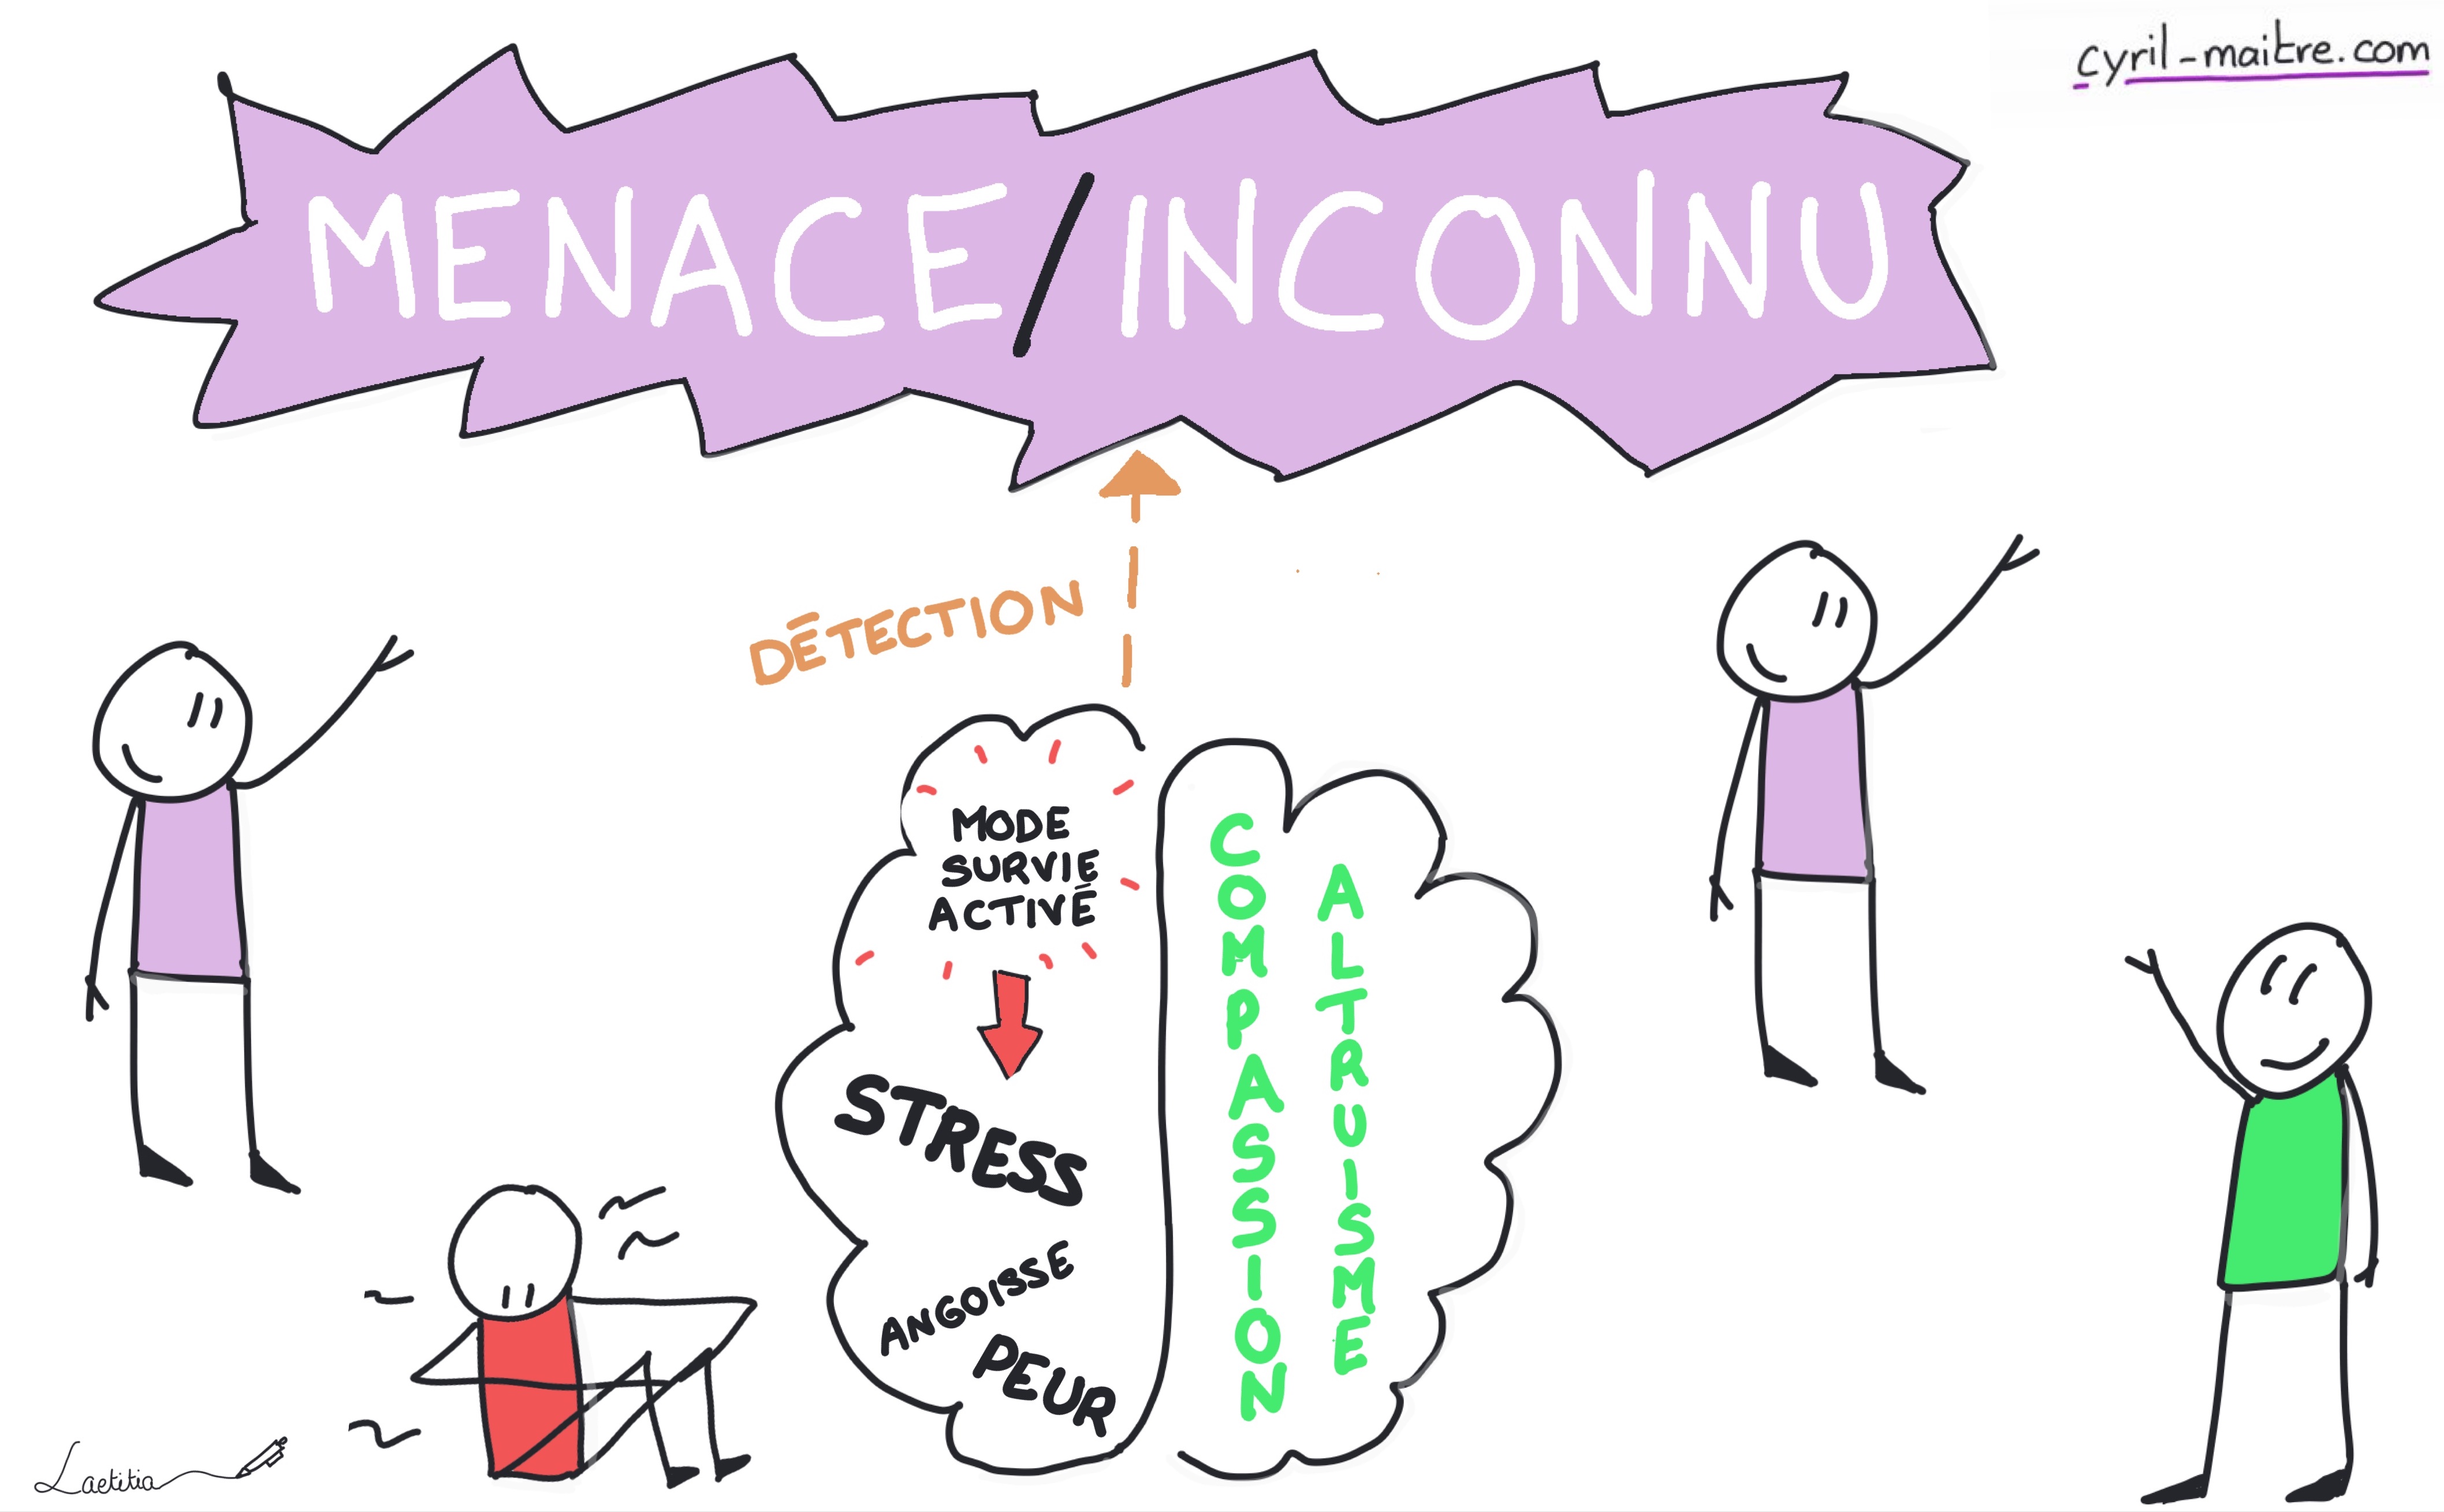 cyril-maitre.com
MENACE/INCONNU
DÉTECTION
MODE
SURVIE
ACTIVÉ
STRESS
ANGOISSE
PEUR
COMPASSION
ALTRUISME
Laetitia